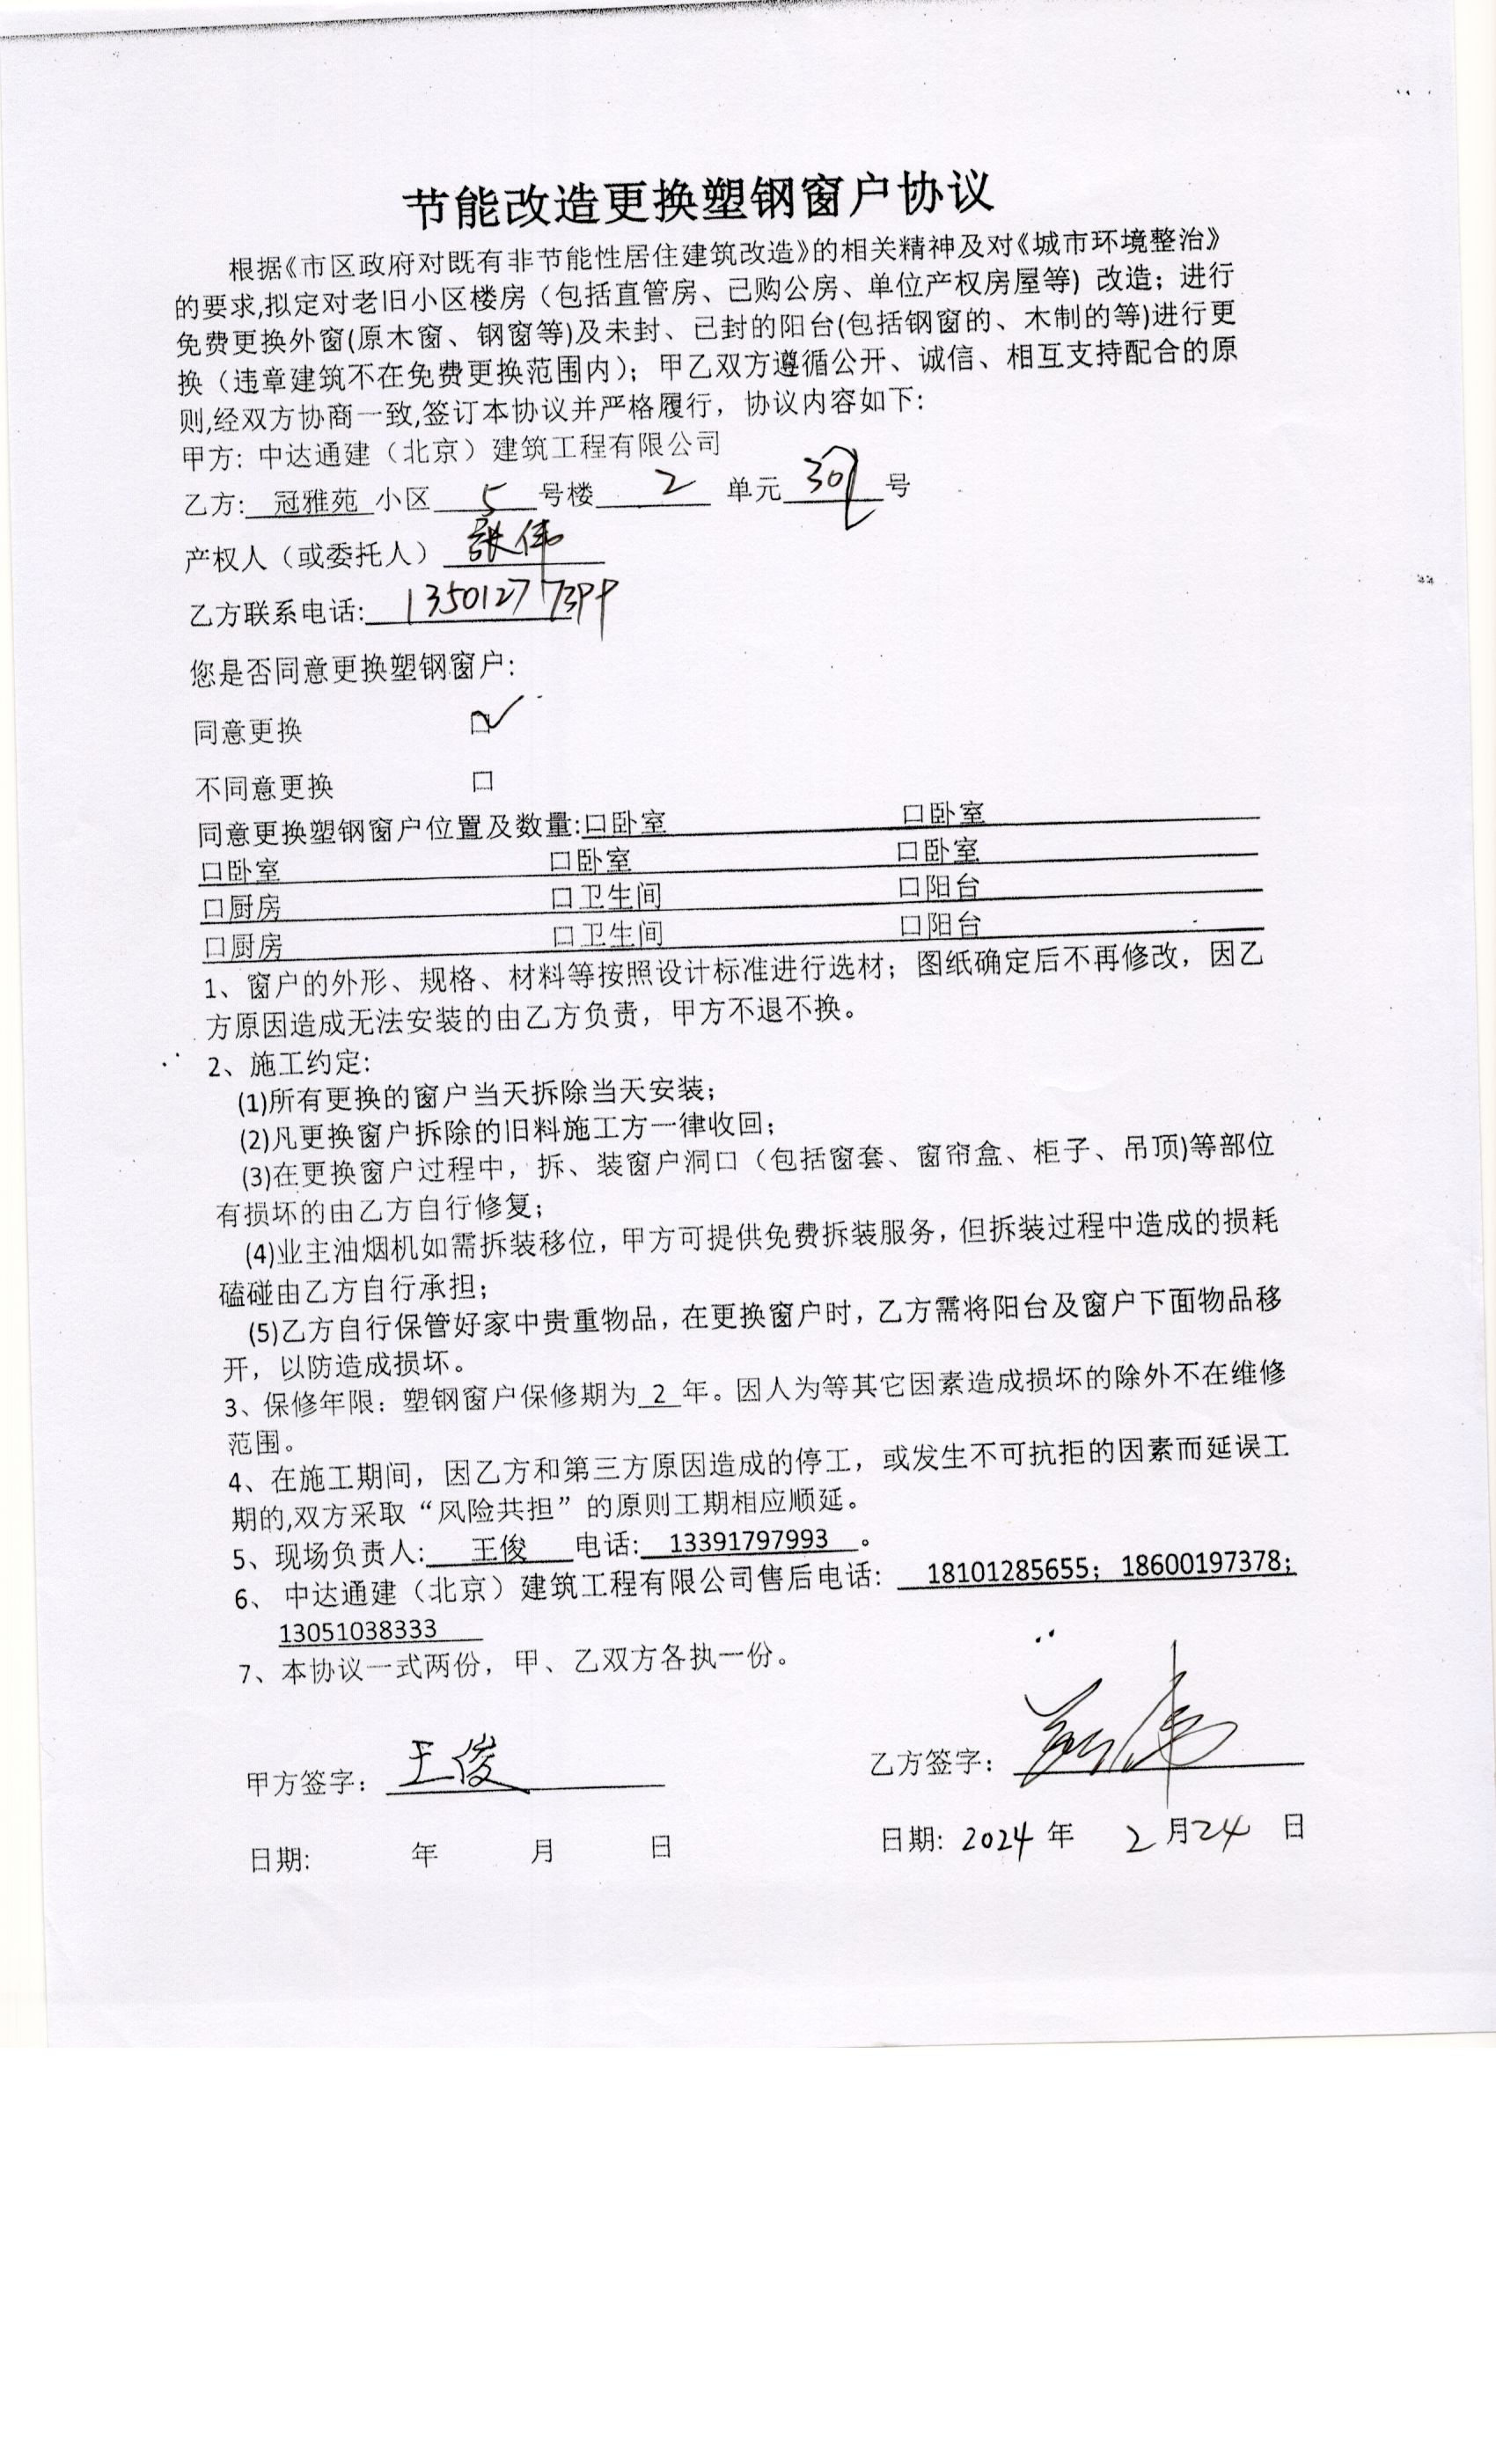 节能改造更换塑钢窗户协议
根据《市区政府对既有非节能性居住建筑改造》的相关精神及对《城市环境整治》
的要求,拟定对老旧小区楼房（包括直管房、已购公房、单位产权房屋等）改造；进行
免费更换外窗(原木窗、钢窗等)及未封、已封的阳台(包括钢窗的、木制的等)进行更
换（违章建筑不在免费更换范围内）；甲乙双方遵循公开、诚信、相互支持配合的原
则,经双方协商一致,签订本协议并严格履行，协议内容如下:
甲方: 中达通建（北京）建筑工程有限公司
乙方: 冠雅苑 小区 5 号楼 2 单元 301 号
产权人（或委托人） 张伟
乙方联系电话:
您是否同意更换塑钢窗户:
同意更换 ☑
不同意更换 口
同意更换塑钢窗户位置及数量:口卧室 口卧室
口卧室 口卧室 口卧室
口厨房 口卫生间 口阳台
口厨房 口卫生间 口阳台
1、窗户的外形、规格、材料等按照设计标准进行选材；图纸确定后不再修改，因乙
方原因造成无法安装的由乙方负责，甲方不退不换。
2、施工约定:
(1)所有更换的窗户当天拆除当天安装；
(2)凡更换窗户拆除的旧料施工方一律收回；
(3)在更换窗户过程中，拆、装窗户洞口（包括窗套、窗帘盒、柜子、吊顶)等部位
有损坏的由乙方自行修复；
(4)业主油烟机如需拆装移位，甲方可提供免费拆装服务，但拆装过程中造成的损耗
磕碰由乙方自行承担；
(5)乙方自行保管好家中贵重物品，在更换窗户时，乙方需将阳台及窗户下面物品移
开，以防造成损坏。
3、保修年限：塑钢窗户保修期为 2 年。因人为等其它因素造成损坏的除外不在维修
范围。
4、在施工期间，因乙方和第三方原因造成的停工，或发生不可抗拒的因素而延误工
期的,双方采取“风险共担”的原则工期相应顺延。
5、现场负责人: 王俊 电话: 13391797993 。
6、中达通建（北京）建筑工程有限公司售后电话: 18101285655；18600197378；
13051038333
7、本协议一式两份，甲、乙双方各执一份。
甲方签字: 王俊 乙方签字:
日期: 年 月 日 日期: 2024 年 2 月 24 日